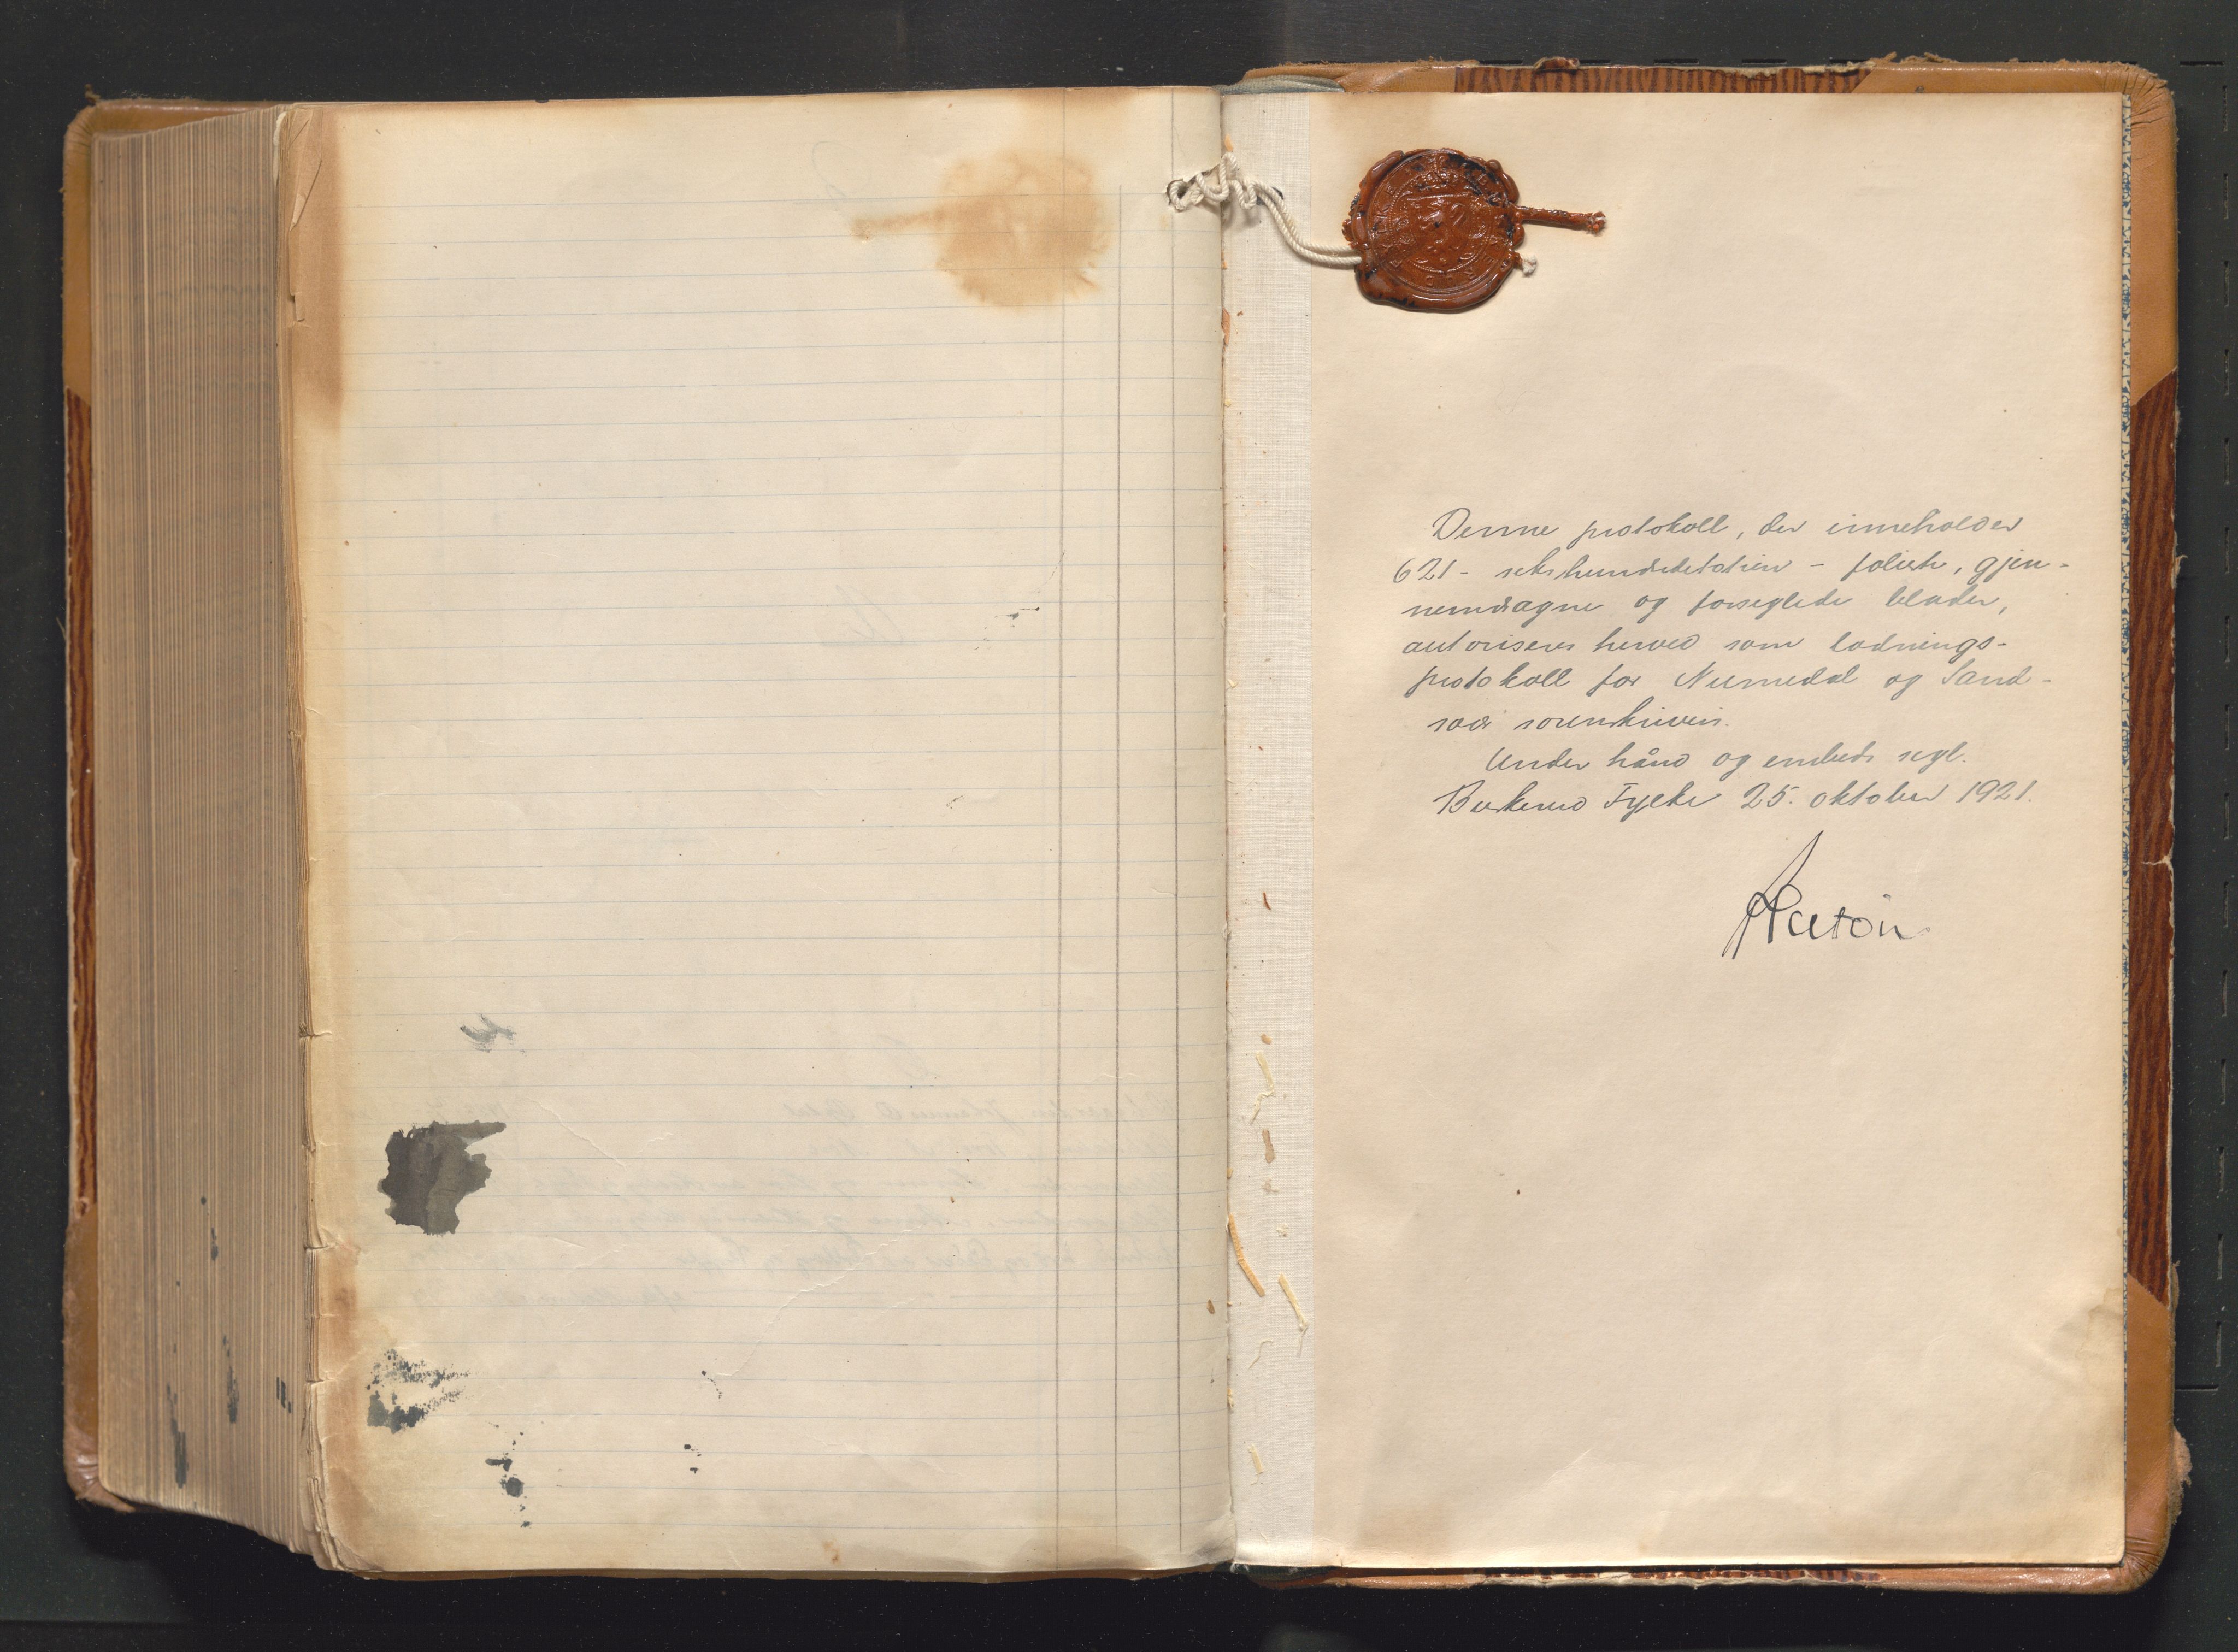 Denne protokoll, der inneholder
621 - sekshundredetotien - folierte, gjen-
nemdragne og forseglede blader,
autoriseres herved som
protokoll for Numedal og Sand-
svær sorenskriveri.
Under hånd og embeds segl.
Buskerud Fylke 25. oktober 1921.